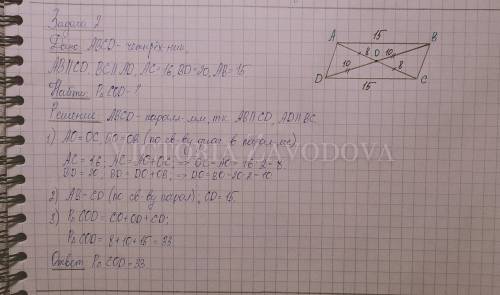 Задача 2
Дано: ABCD - четырёх-ник,
AB||CD, BC||AD, AC=16, BD=20, AB=15
Найти: P△ COD - ?
Решение: ABCD - парал-мм, т.к. AB||CD, AD||BC
1) AO=OC, BO=OB (по св-ву диаг. в парал-ме)
AC=16, AC=AO+OC => OC=AO=16:2=8
BD=20; BD=DO+OB; => DO=BO=20:2=10
2) AB=CD (по св-ву парал), CD=15.
3) P△ COD = CO+OD+CD;
P△ COD = 8+10+15=33
Ответ: P△ COD=33
A 15 B
8 O 10
10 8
D 15 C